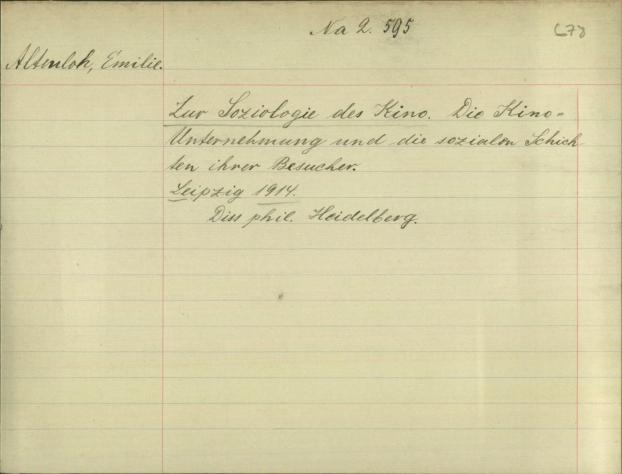 Na 2. 595
Altenloh, Emilie.
Zur Soziologie des Kino. Die Kino-
Unternehmung und die sozialen Schich
ten ihrer Besucher.
Leipzig 1914.
Diss phil. Heidelberg.